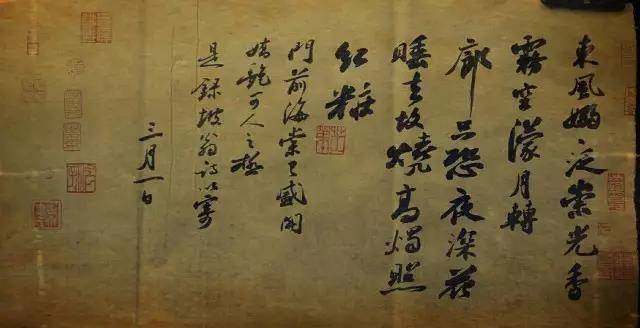 東風嫋泛崇光香
霧空濛月轉
廊只恐夜深花
睡去故燒高燭照
紅粧
門前海棠已盛開
嬌艷可人之極
是録坡翁詩以寄
三月一日